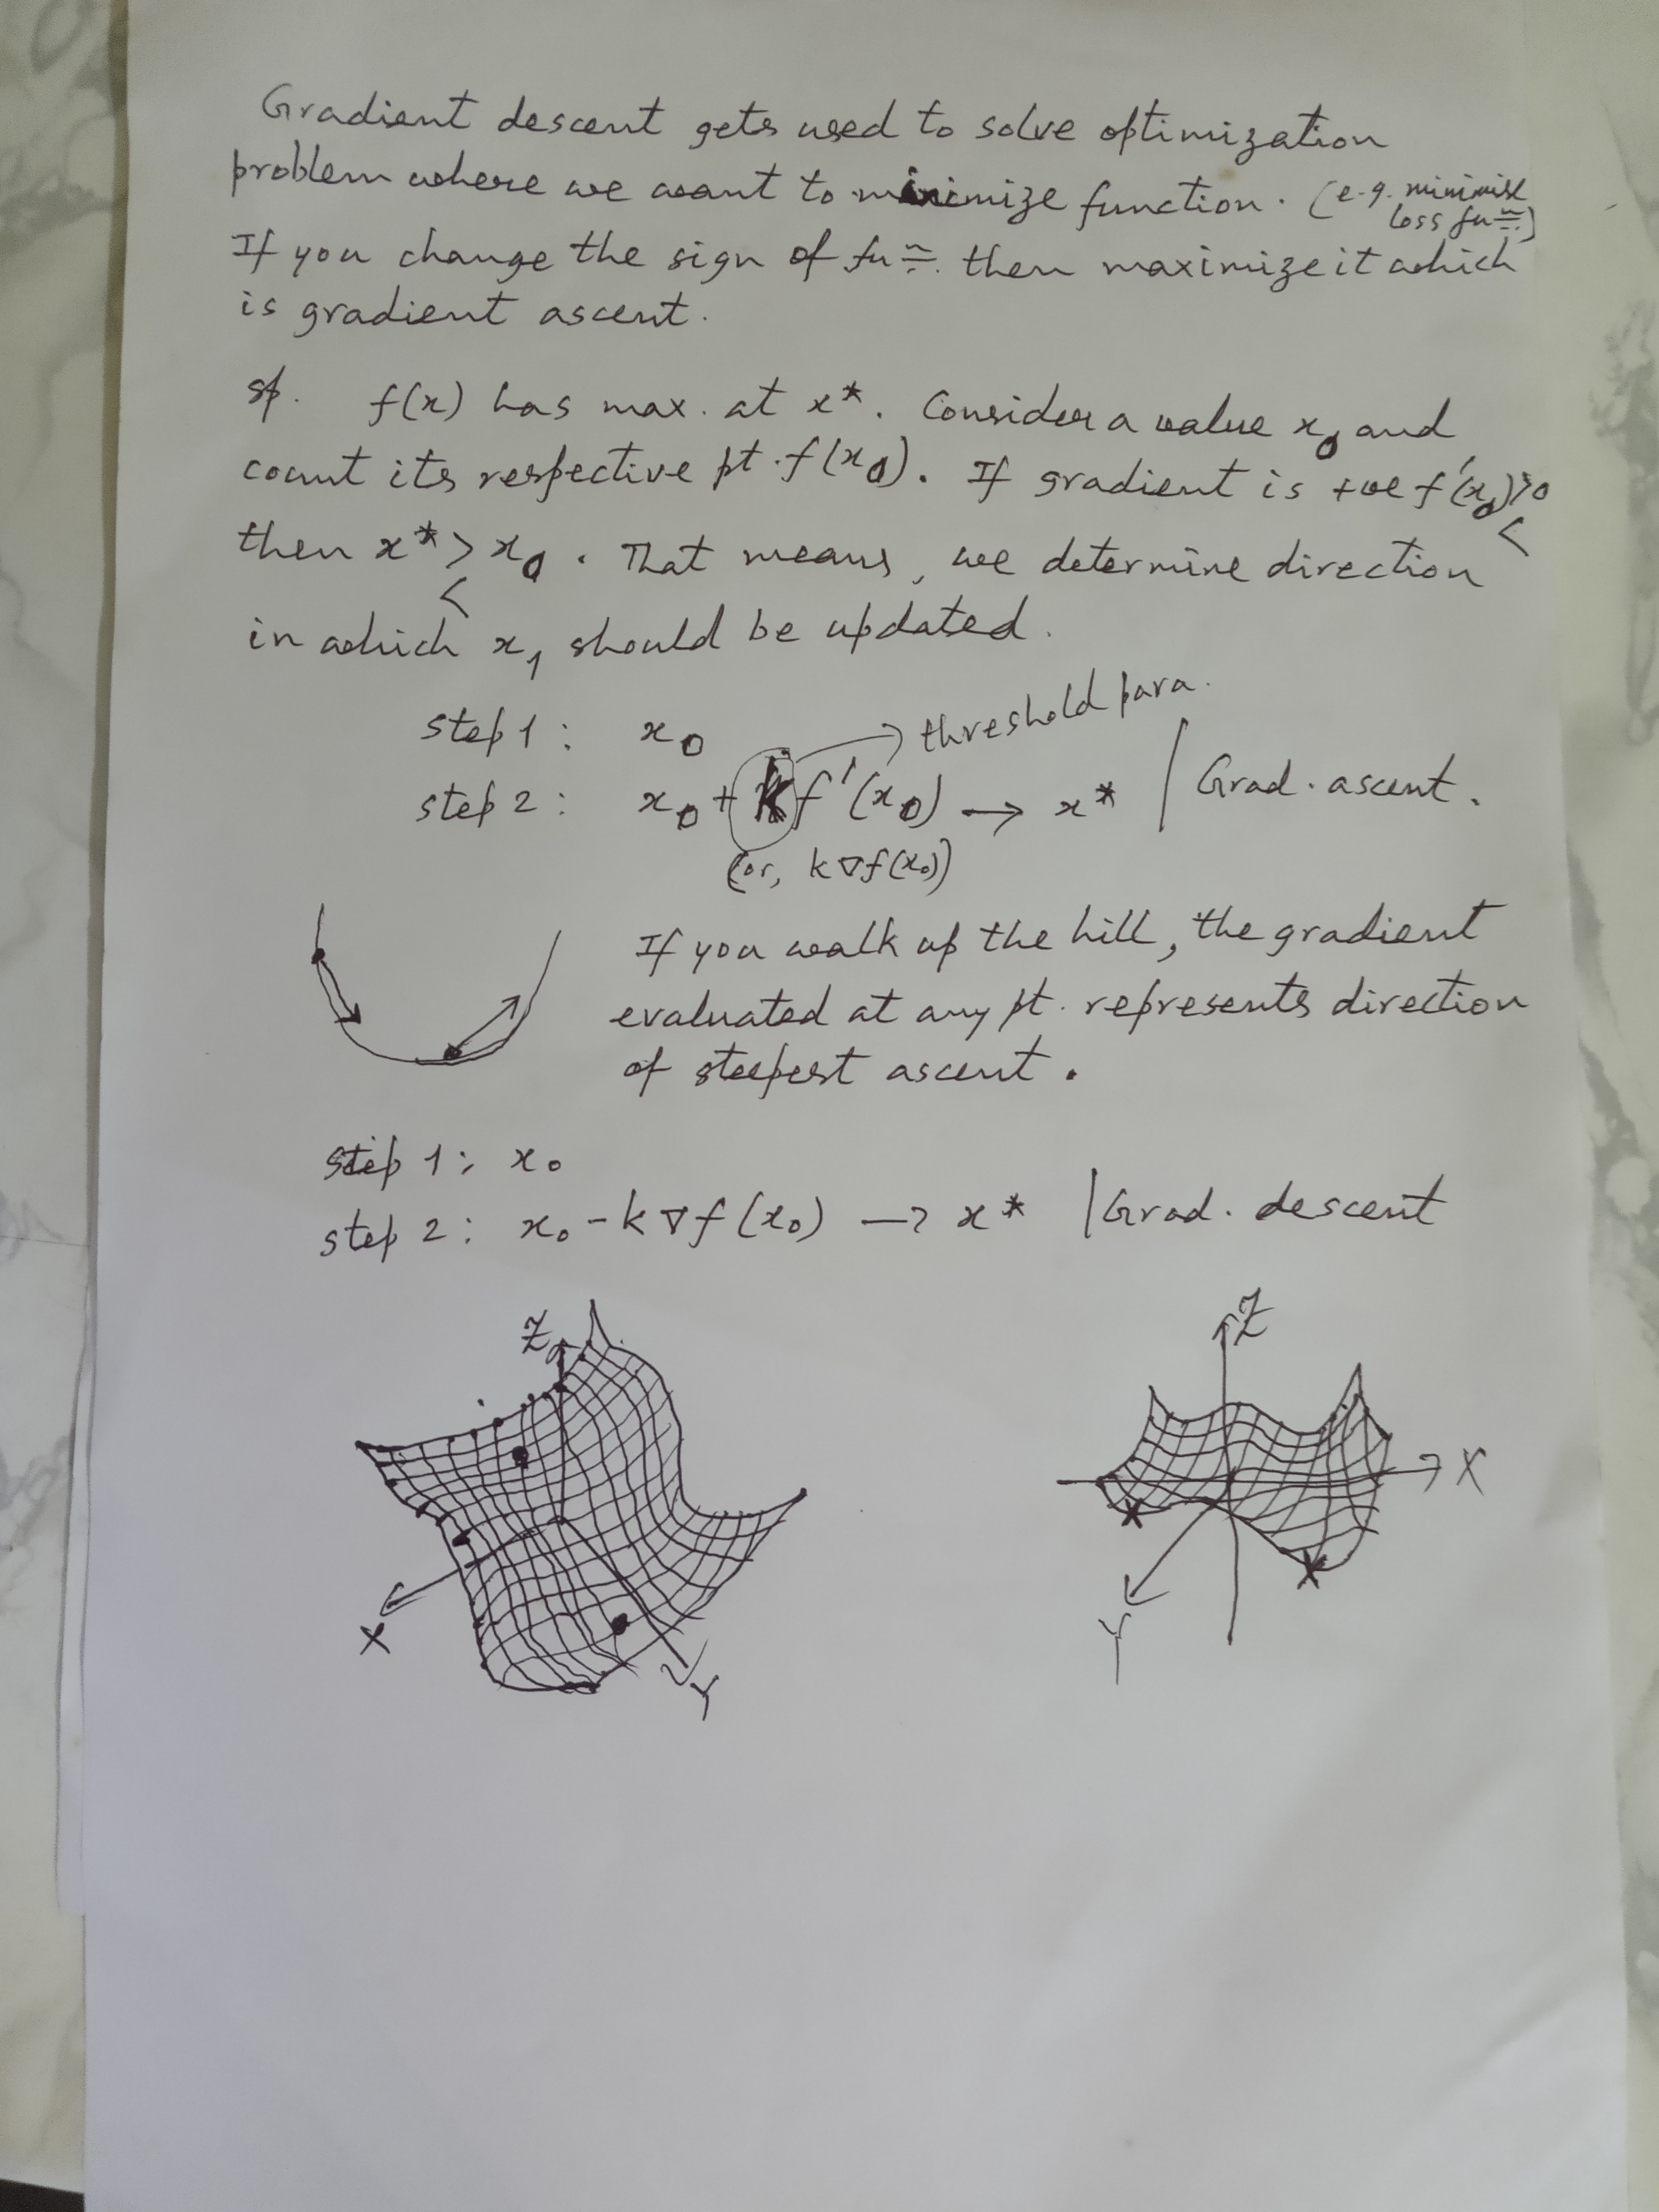 Gradient descent gets used to solve optimization
problem where we want to minimize function. (e.g. minimise
loss fu≅)
If you change the sign of fu≅. then maximize it which
is gradient ascent.
sp. f(x) has max. at x*. Consider a value x₀ and
count its respective pt. f(x₀). If gradient is +ve f'(x₀)>0
<
then x* > x₀. That means, we determine direction
<
in which x₁ should be updated.
step 1: x₀ → threshold para.
step 2: x₀ + k f'(x₀) → x* | Grad. ascent.
(or, k∇f(x₀))
If you walk up the hill, the gradient
evaluated at any pt. represents direction
of steepest ascent.
step 1: x₀
step 2: x₀ - k∇f(x₀) → x* | Grad. descent
Z Z
X
X
Y
Y